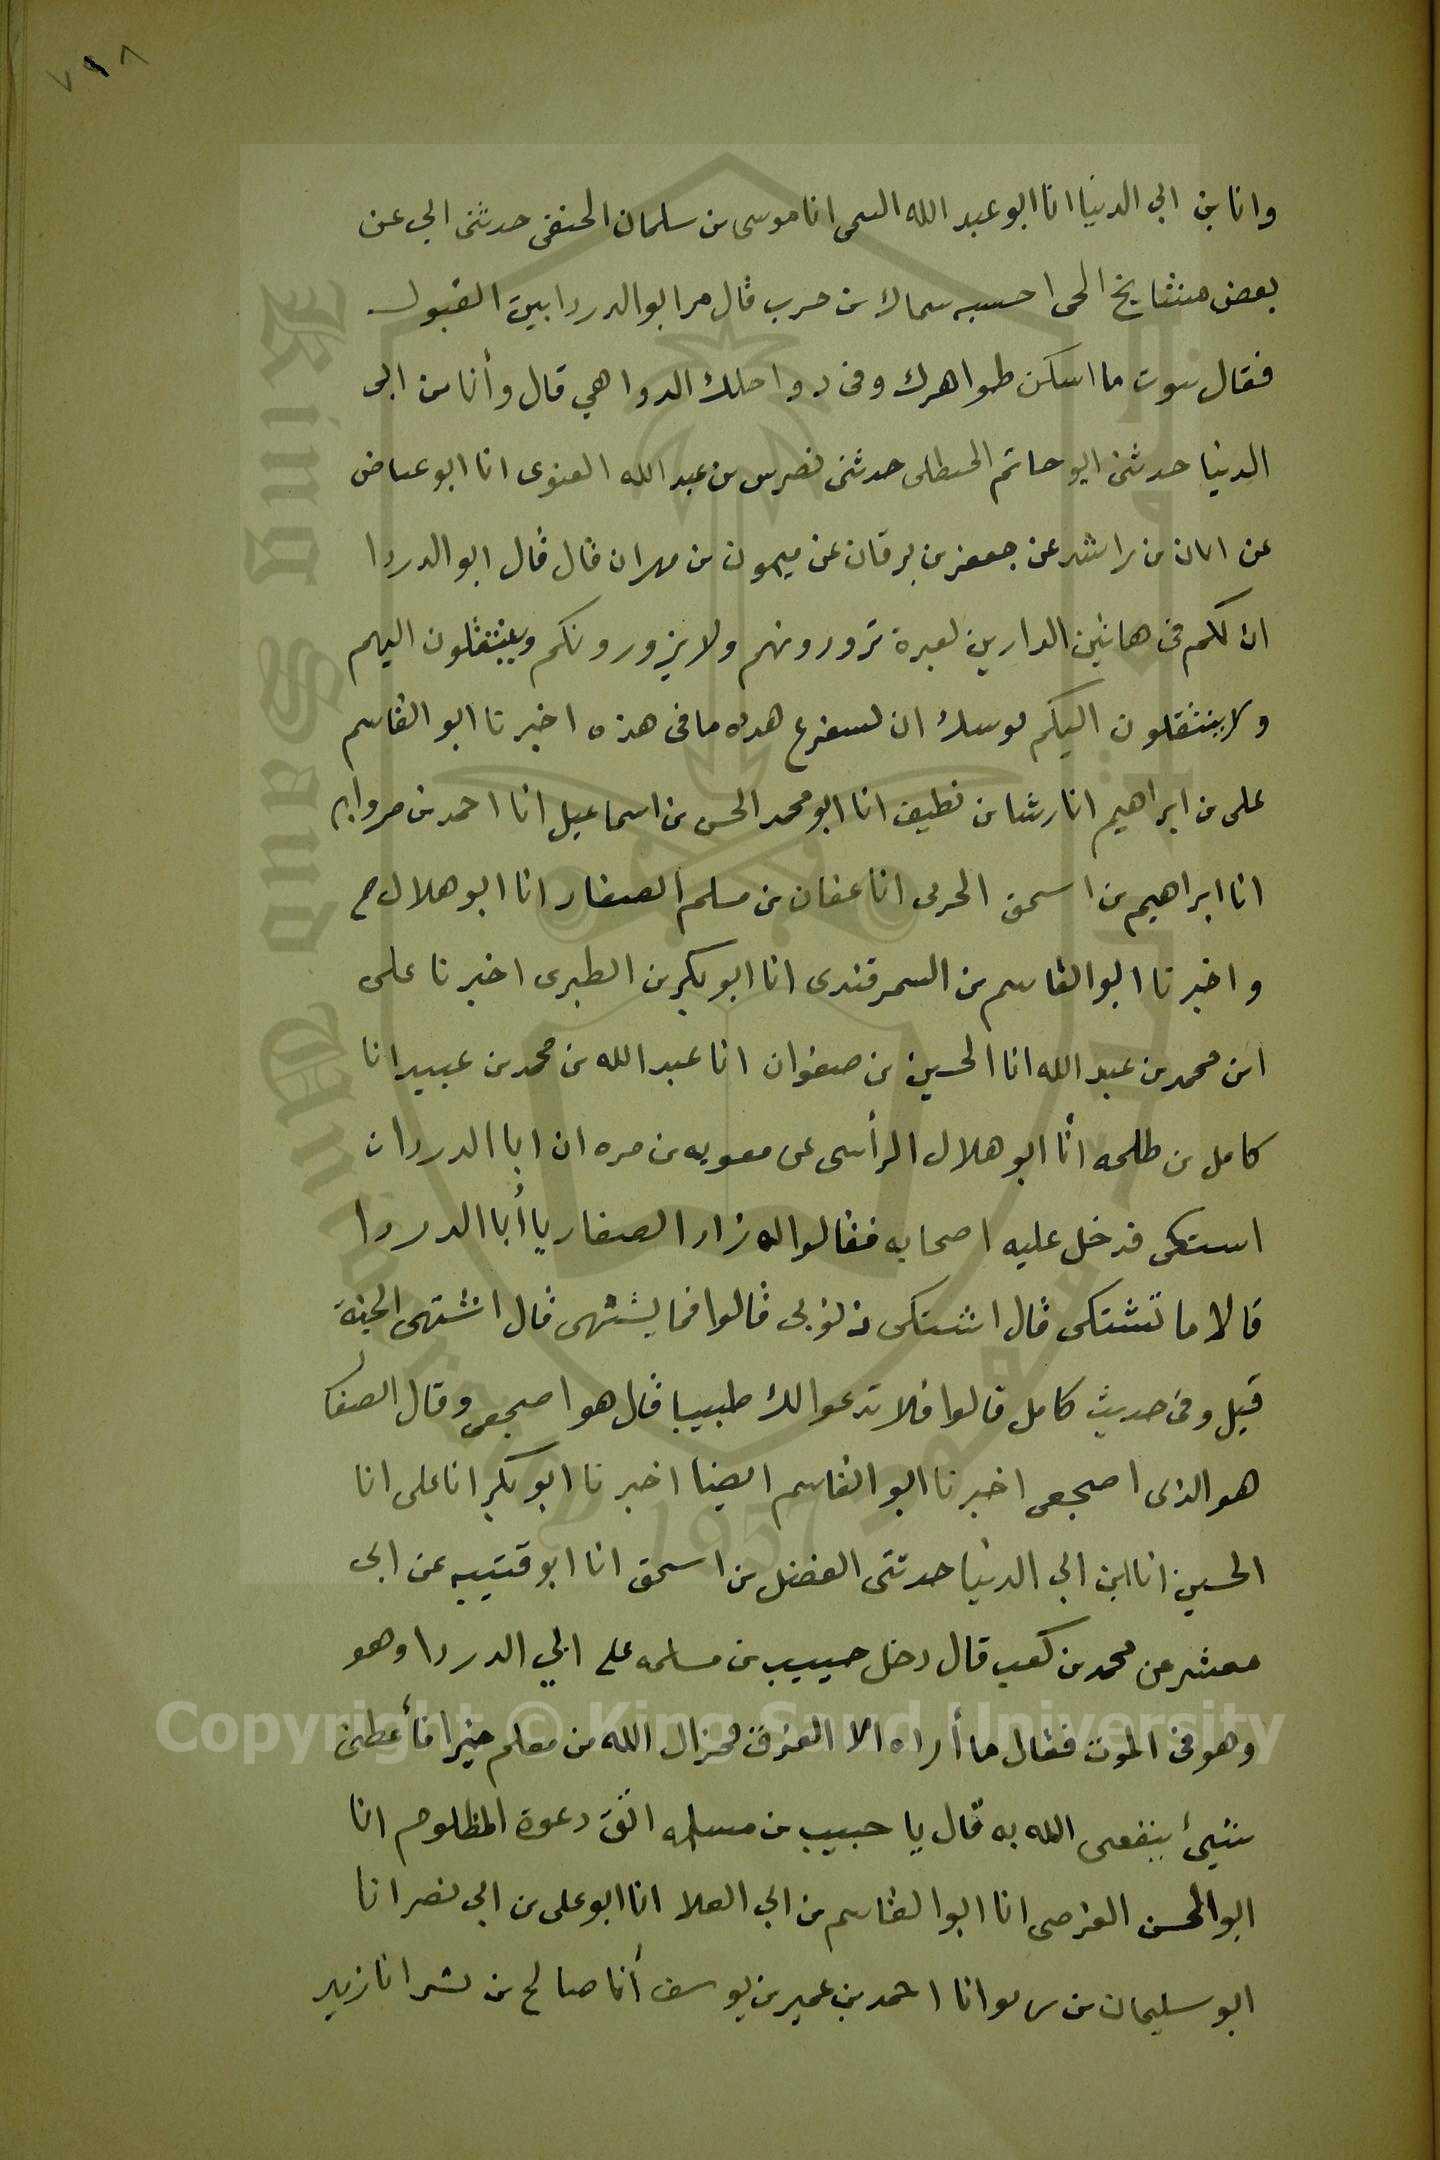 ٧٩٨
وانا بن ابي الدنيا انا ابو عبد الله السمى انا موسى بن سلمان الحنفى حدثنى ابي عن
بعض مشايخ الحى احسبه سماك بن حرب قال مر ابو الدردا بين القبور
فقال بيوت ما اسكن طواهرك وفى دواخلك الدواهي قال وأنا بن ابى
الدنيا حدثنى ابو حاتم الحنطلى حدثنى نصر بن عبد الله العنوى انا ابو عياض
عن ابان بن راشد عن جعفر بن برقان عن ميمون بن مهران قال قال ابو الدردا
ان لكم فى هاتين الدارين لعبرة تزورونهم ولا يزورونكم وينتقلون اليهم
ولا ينتقلون اليكم يوسك ان لسفرع هده ما فى هذه اخبرنا ابو القاسم
على بن ابراهيم انا رشا بن نطيف انا ابو محمد الحسن بن اسماعيل انا احمد بن مروان
انا ابراهيم بن اسحق الحربى انا عفان بن مسلم الصفار انا ابو هلال ح
واخبرنا ابو القاسم بن السمرقندى انا ابو بكر بن الطبرى اخبرنا على
ابن محمد بن عبد الله انا الحسين بن صفوان انا عبد الله بن محمد بن عبيد انا
كامل بن طلحه انا ابو هلال الرأسى عن معويه بن مره ان ابا الدردا
استكى فدخل عليه اصحابه فقالوا له زاد الصفار يا أبا الدردا
قالا ما تشتكى قال اشتكى ذنوبى قالوا فما يشتهى قال اشتهى الجنة
قيل وفى حديث كامل قالوا فلا تدعوا لك طبيبا قال هو اضجعى وقال الصفا
هو الذى اضجعى اخبرنا ابو القاسم ايضا اخبرنا ابو بكر انا على انا
الحسين انا ابن ابي الدنيا حدثنى الفضل بن اسحق انا ابو قتيبه عن ابى
معشر عن محمد بن كعب قال دخل حبيب بن مسلمه على ابي الدردا وهو
وهو فى الموت فقال ما أراه الا الفراق فجزاك الله من معلم خيرا فأعطنى
شيئ ينفعى الله به قال يا حبيب بن مسلمه اتق دعوة المظلوم انا
ابو الحسن الفرضى انا ابو القاسم بن ابي العلا انا ابو على بن ابي نصر انا
ابو سليمان بن انا احمد بن عمير بن يوسف أنا صالح بن بشر انا زيد
King Saud University
1957
Copyright © King Saud University